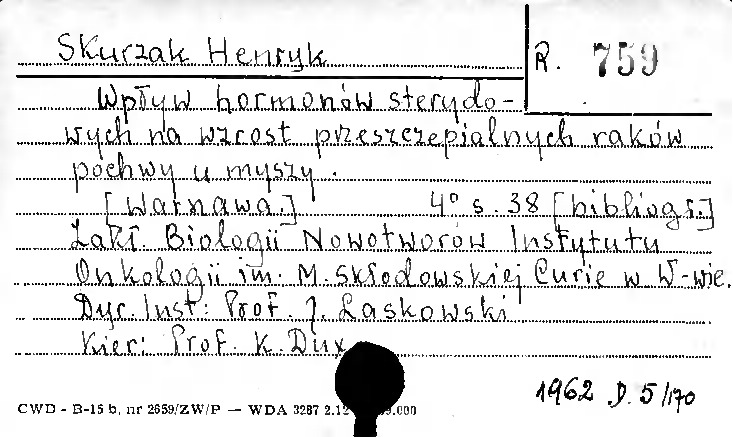 Skurzak Henryk
R. 759
Wpływ hormonów sterydo-
wych na wzrost przeszczepialnych raków
pochwy u myszy.
[Warszawa.] 4° s. 38 [bibliogr.]
Zakł. Biologii Nowotworów Instytutu
Onkologii im. M. Skłodowskiej Curie w W-wie.
Dyr. Inst: Prof. J. Laskowski
Kier: Prof. K. Dux
1962 D. 5/170
CWD - B-15 b, nr 2659/ZW/P — WDA 3287 2.12 .000